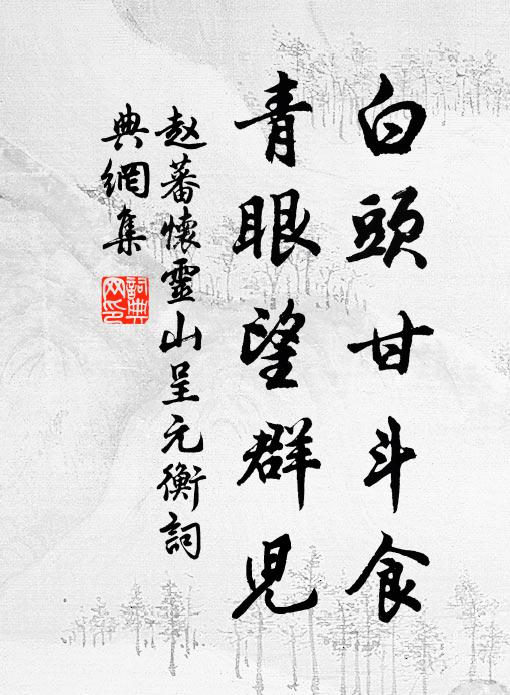 白頭甘斗食
青眼望群児
赵蕃懷靈山呈元衡詞
典網集
詞典网印